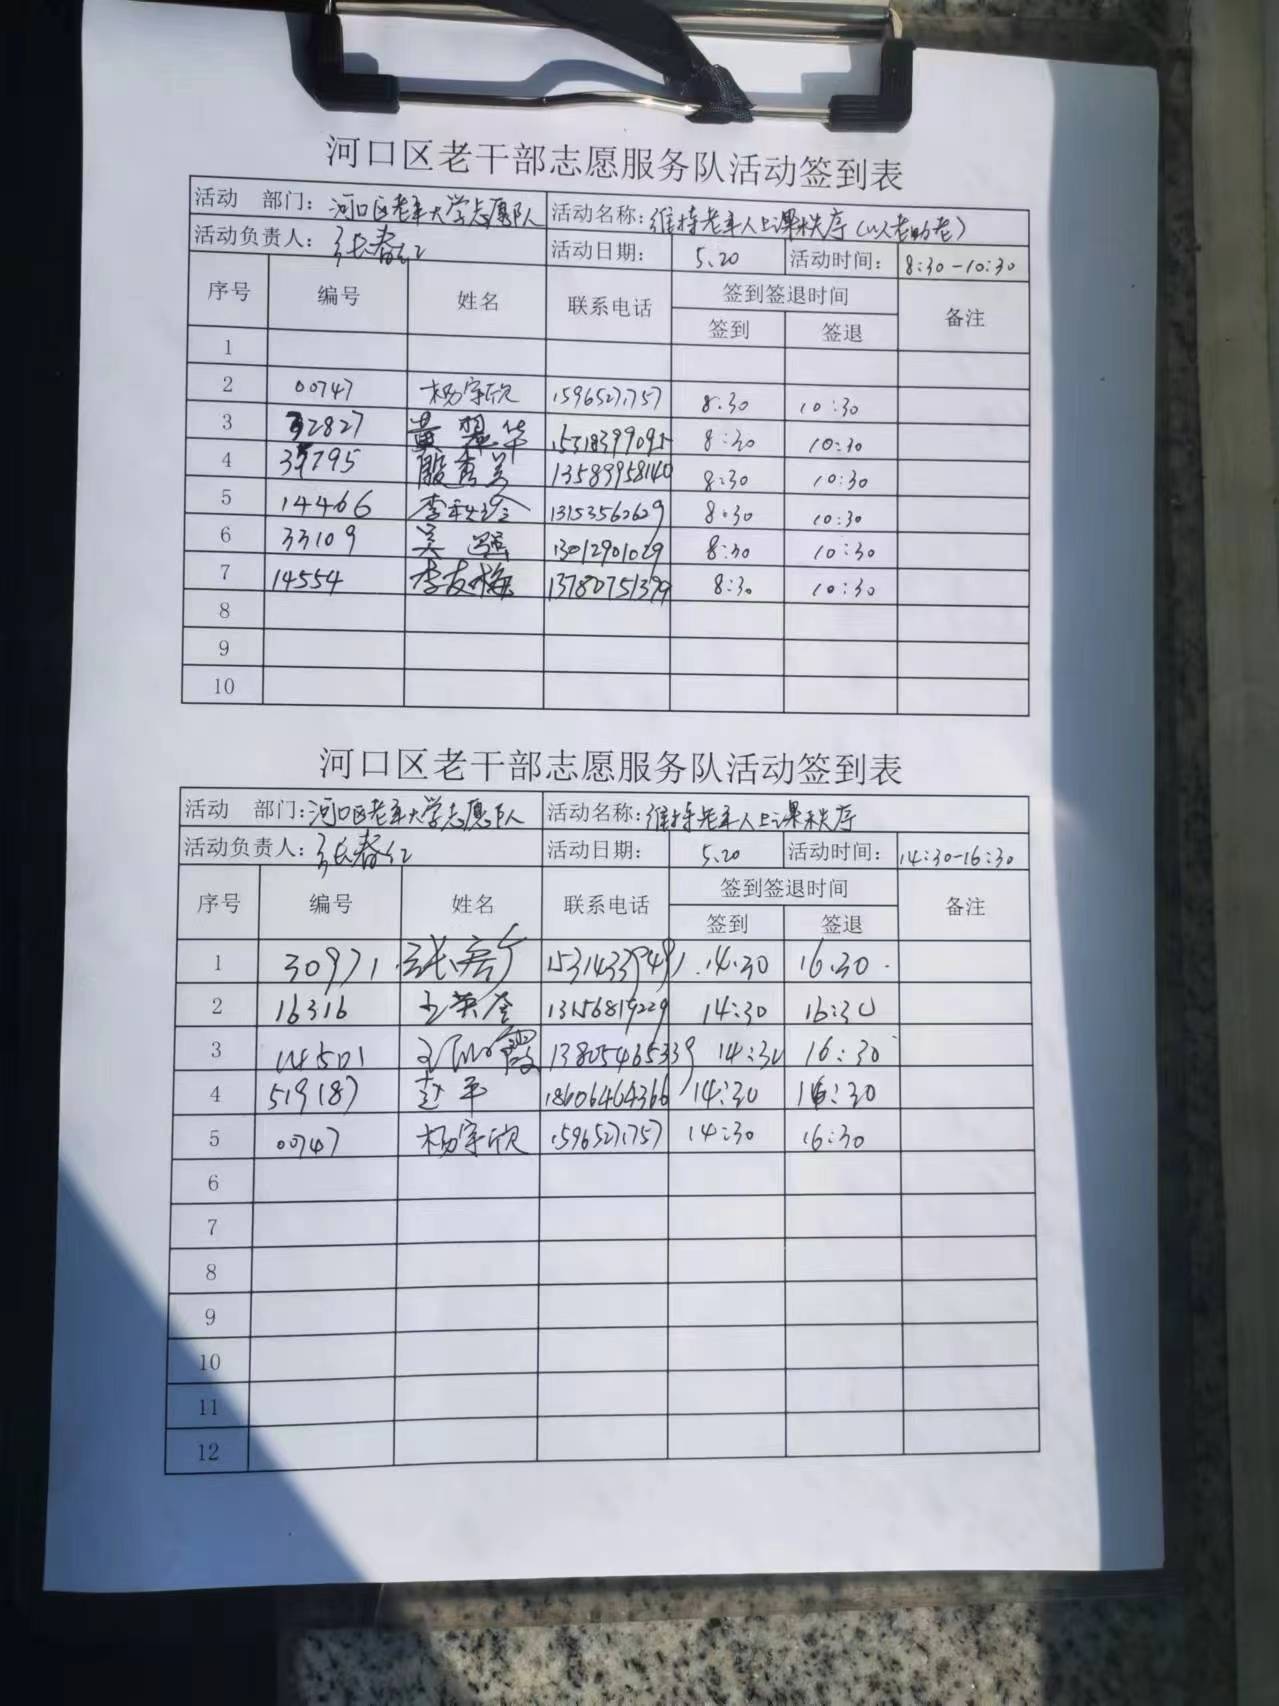 河口区老干部志愿服务队活动签到表
活动 部门: 河口区老年大学志愿队 活动名称: 维持老年人上课秩序(以老助老)
活动负责人: 张春红 活动日期: 5.20 活动时间: 8:30-10:30
序号 编号 姓名 联系电话 签到签退时间 备注
签到 签退
1
2 00747 杨宇欣 15965271757 8.30 10:30
3 32827 黄翠华 15318399095 8:30 10:30
4 39795 殷秀美 13589958140 8:30 10:30
5 14466 李秋玲 13153562629 8:30 10:30
6 33109 吴 13012901029 8:30 10:30
7 14554 李友梅 13780751399 8:30 10:30
8
9
10
河口区老干部志愿服务队活动签到表
活动 部门: 河口区老年大学志愿队 活动名称: 维持老年人上课秩序
活动负责人: 张春红 活动日期: 5.20 活动时间: 14:30-16:30
序号 编号 姓名 联系电话 签到签退时间 备注
签到 签退
1 30971 15314339491 14.30 16.30
2 16316 王英奎 13156819229 14:30 16:30
3 14501 13805465339 14:30 16:30
4 519187 赵平 18606464366 14:30 16:30
5 00747 杨宇欣 15965271757 14:30 16:30
6
7
8
9
10
11
12